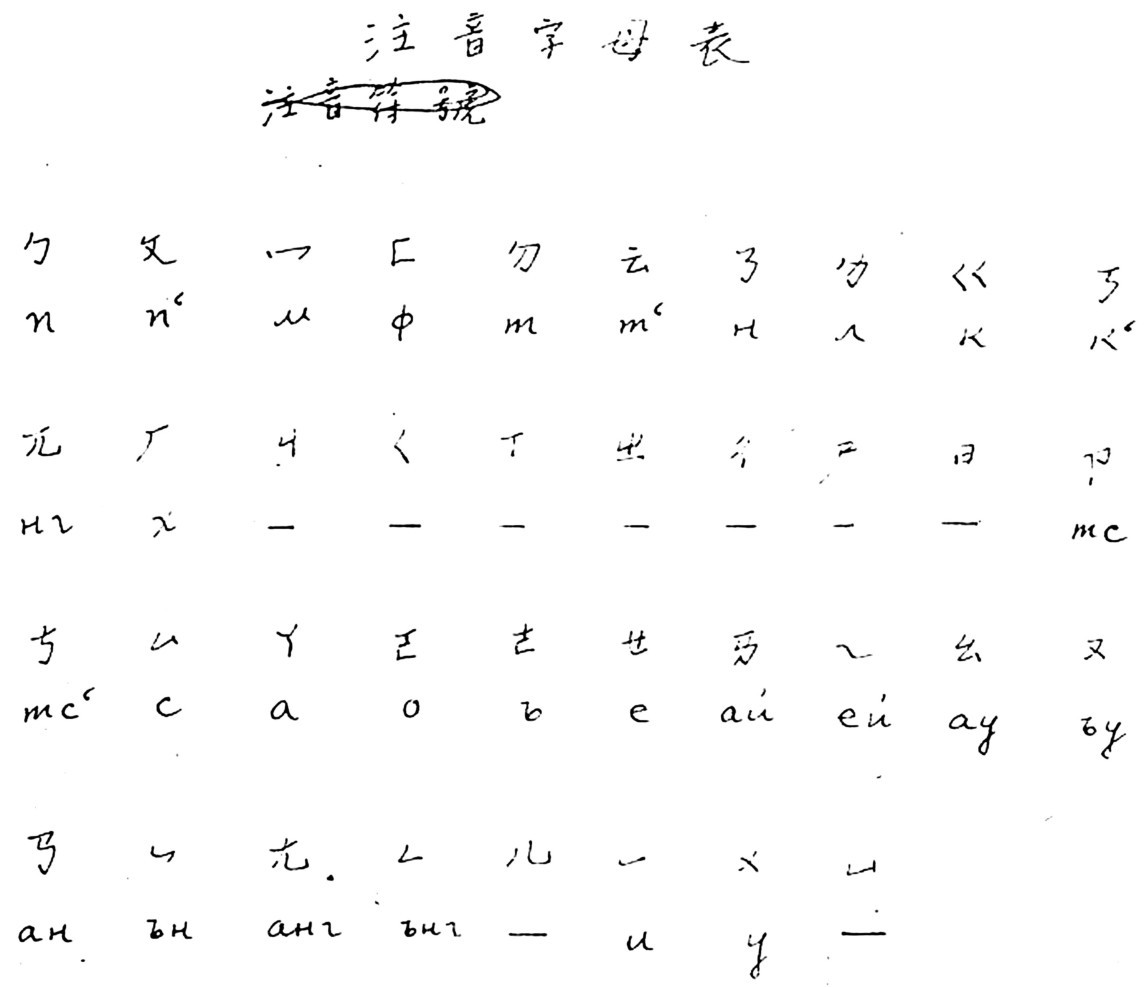 注音字母表
注音符號
ㄅ ㄆ ㄇ ㄈ ㄉ ㄊ ㄋ ㄌ ㄍ ㄎ
п п‘ м ф т т‘ н л к к‘
ㄫ ㄏ ㄐ ㄑ ㄒ ㄓ ㄔ ㄕ ㄖ ㄗ
нг х — — — — — — — тс
ㄘ ㄙ ㄚ ㄛ ㄜ ㄝ ㄞ ㄟ ㄠ ㄡ
тс‘ с а о ъ е ай ей ау ъу
ㄢ ㄣ ㄤ ㄥ ㄦ ㄧ ㄨ ㄩ
ан ън анг ънг — и у —